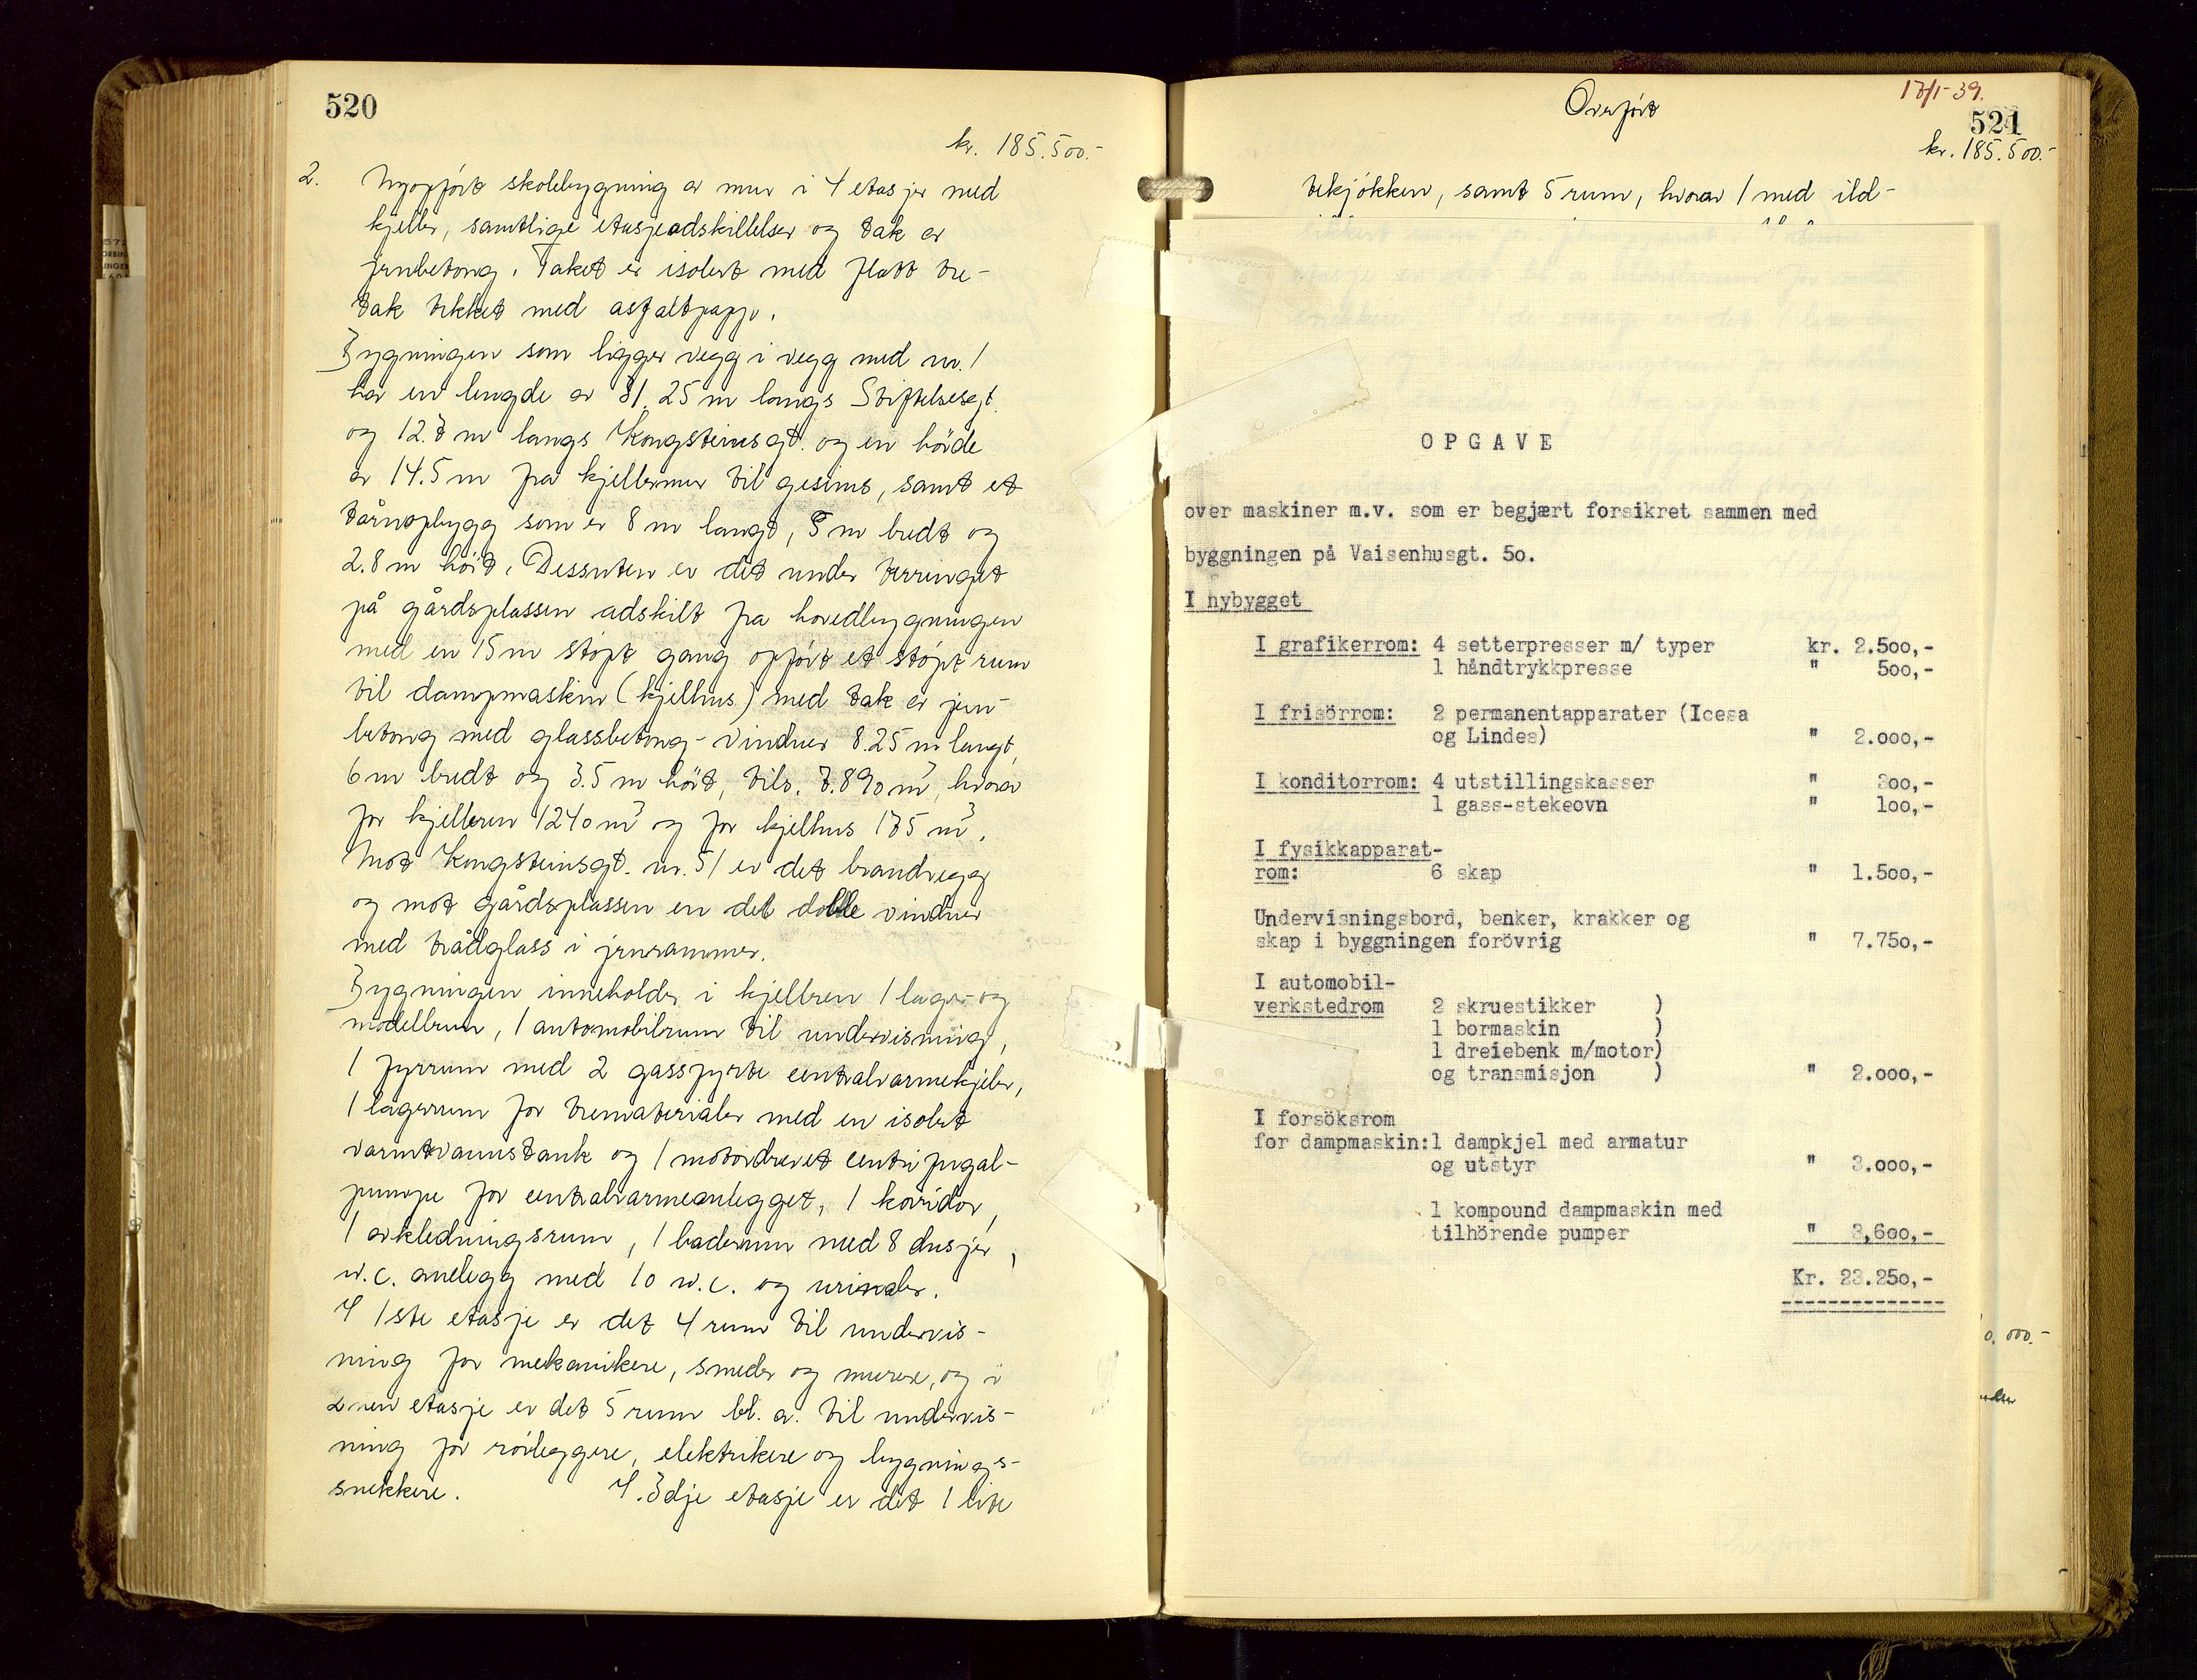 520
kr. 185.500.-
2. Nyopført skolebygning av mur i 4 etasjer med
kjeller, samtlige etasjeadskillelser og tak av
jernbetong. Taket er isolert med flatt tre-
tak tekket med asfaltpapp.
Bygningen som ligger vegg i vegg med nr. 1
har en lengde av 31.25 m langs Stiftelsesgt.
og 12.7 m langs Kongsteinsgt. og en høide
av 14.5 m fra kjellermur til gesims, samt et
tårnopbygg som er 8 m langt, 5 m bredt og
2.8 m høit. Dessuten er det under terrenget
på gårdsplassen adskilt fra hovedbygningen
med en 15 m støpt gang opført et støpt rum
til dampmaskin (kjelhus) med tak av jern-
betong med glassbetong-vinduer 8.25 m langt,
6 m bredt og 3.5 m høit, tils. 7.890 m³, hvorav
for kjelleren 1240 m³ og for kjelhus 175 m³.
Mot Kongsteinsgt. nr. 51 er det brandvegg
og mot gårdsplassen en del doble vinduer
med trådglass i jernrammer.
Bygningen inneholder i kjelleren 1 lager- og
modellrum, 1 automobilrum til undervisning,
1 fyrrum med 2 gassfyrte centralvarmekjeler,
1 lagerrum for trematerialer med en isolert
varmtvannstank og 1 motordrevet centrifugal-
pumpe for centralvarmeanlegget, 1 korridor,
1 avkledningsrum, 1 baderum med 8 dusjer,
w.c. anlegg med 10 w.c. og urinaler.
I 1ste etasje er det 4 rum til undervis-
ning for mekanikere, smeder og murere, og i
2nen etasje er det 5 rum bl. a. til undervis-
ning for rørleggere, elektrikere og bygnings-
snekkere. I 3dje etasje er det 1 lite
Overført
17/1-39.
521
kr. 185.500.-
tekjøkken, samt 5 rum, hvorav 1 med ild-
OPGAVE
over maskiner m.v. som er begjært forsikret sammen med
byggningen på Vaisenhusgt. 5o.
I nybygget
I grafikerrom: 4 setterpresser m/ typer kr. 2.5oo,-
1 håndtrykkpresse " 5oo,-
I frisörrom: 2 permanentapparater (Icesa
og Lindes) " 2.ooo,-
I konditorrom: 4 utstillingskasser " 3oo,-
1 gass-stekeovn " loo,-
I fysikkapparat-
rom: 6 skap " 1.5oo,-
Undervisningsbord, benker, krakker og
skap i byggningen forövrig " 7.75o,-
I automobil-
verkstedrom 2 skruestikker )
1 bormaskin )
1 dreiebenk m/motor)
og transmisjon ) " 2.ooo,-
I forsöksrom
for dampmaskin:1 dampkjel med armatur
og utstyr " 3.ooo,-
1 kompound dampmaskin med
tilhörende pumper " 3,6oo,-
Kr. 23.25o,-
0.000.-